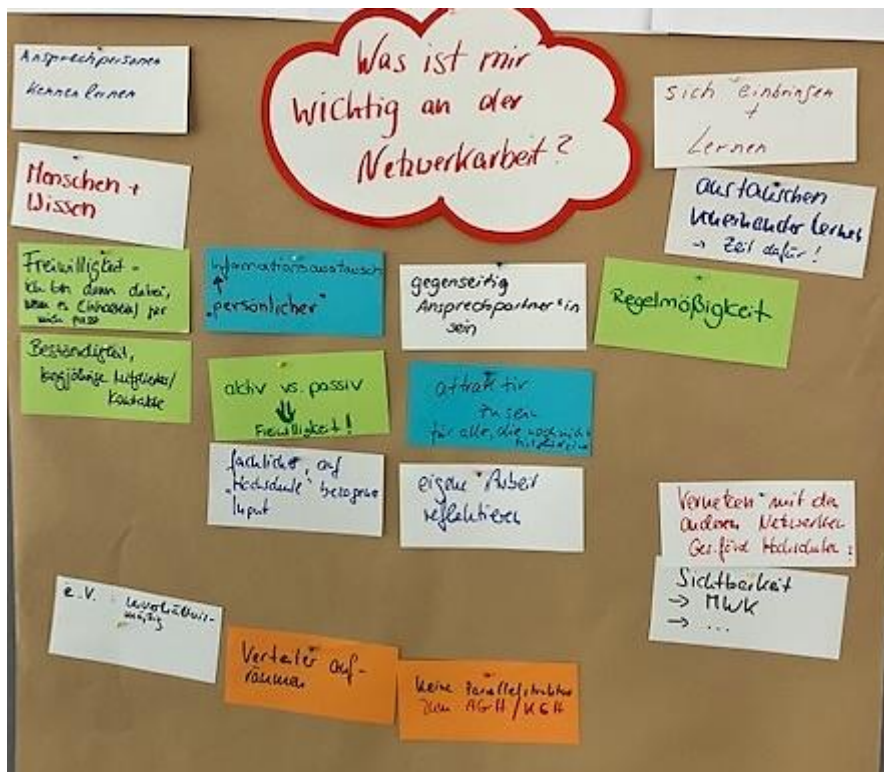 Was ist mir
wichtig an der
Netzwerkarbeit?
Ansprechpersonen
kennen lernen
Menschen +
Wissen
Freiwilligkeit -
ich bin dann dabei,
wenn es für
mich passt
Beständigkeit,
langjährige Mitglieder/
Kontakte
Informationsaustausch
↑
"persönlicher"
aktiv vs. passiv
⇓
Freiwilligkeit!
fachlicher, auf
"Hochschule" bezogener
Input
gegenseitig
Ansprechpartner*in
sein
attraktiv
zu sein
für alle, die noch nicht
eigene Arbeit
reflektieren
sich einbringen
+
Lernen
austauschen
voneinander lernen
→ Zeit dafür!
Regelmäßigkeit
Vernetzen mit den
anderen Netzwerken
Ges.förd Hochschulen
Sichtbarkeit
→ MWK
→ ...
e.V. : unverhältnis-
mäßig
Verteiler auf-
räumen
keine Parallelstruktur
zum AGH/KGH